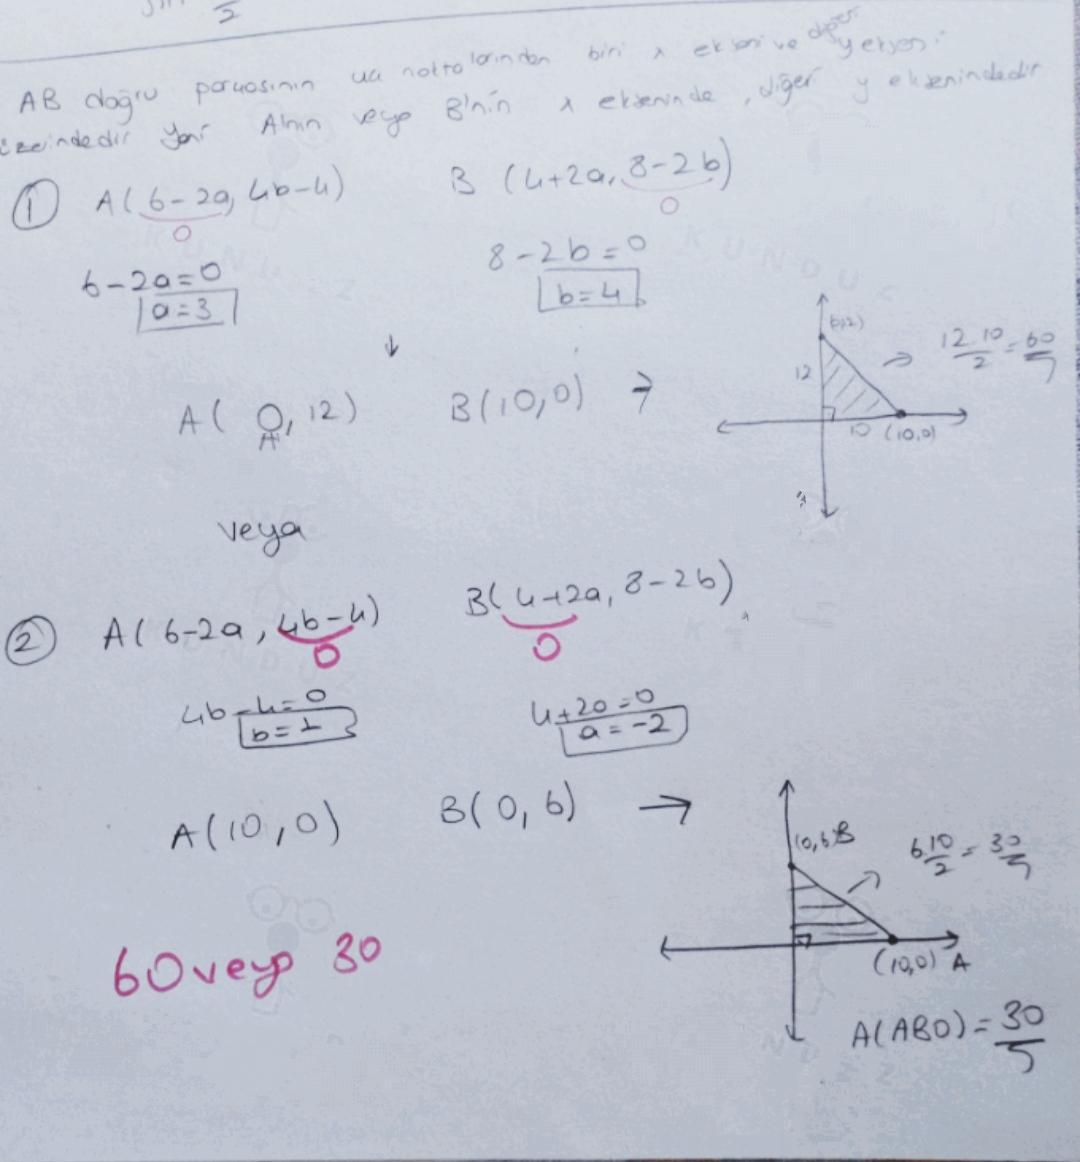 2
AB doğru parçasının uç noktalarından biri x ekseni ve diğer y ekseni
üzerindedir Yani A'nın veya B'nin x ekseninde, diğer y eksenindedir
① A(6-2a, 4b-4) B (4+2a, 8-2b)
0 0
6-2a=0 8-2b=0
a=3 b=4
↓
A( 0, 12) B(10,0) →
12
10 (10,0)
12.10/2 = 60
veya
② A(6-2a, 4b-4) B(4+2a, 8-2b)
0 0
4b-4=0 4+2a=0
b=1 a=-2
A(10,0) B(0,6) →
(0,6)B
6.10/2 = 30
(10,0) A
60 veya 30
A(ABO) = 30
KUNDUZ